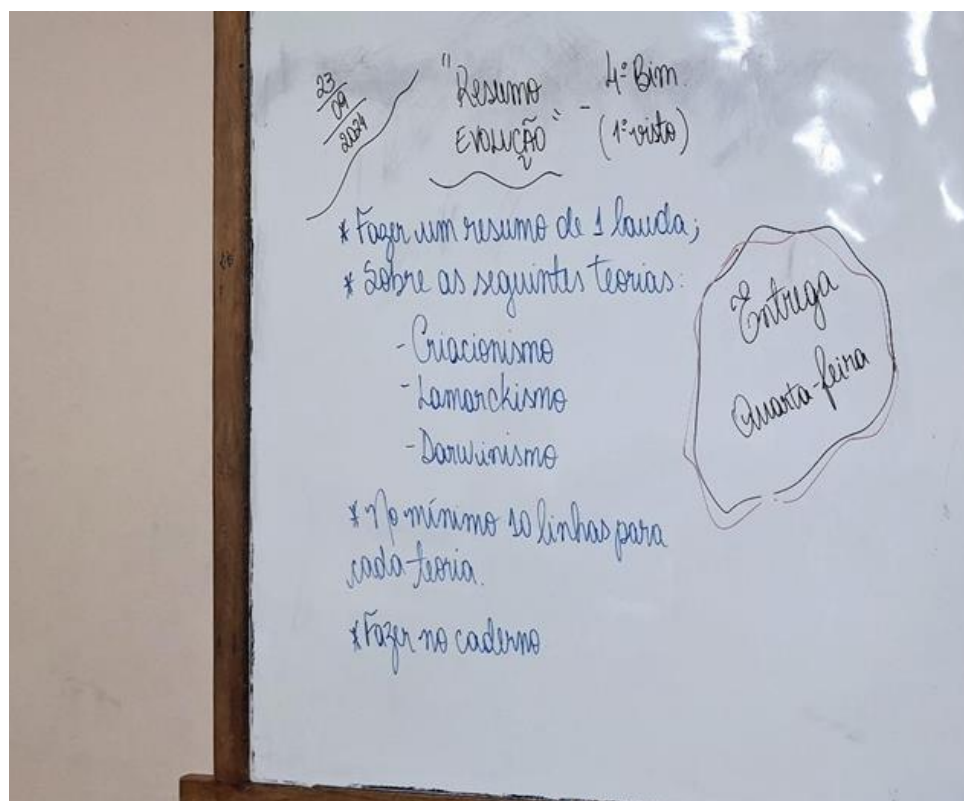 23
09
2024
"Resumo
EVOLUÇÃO" -
4º Bim.
(1º visto)
* Fazer um resumo de 1 lauda;
* Sobre as seguintes teorias:
- Criacionismo
- Lamarckismo
- Darwinismo
* No mínimo 10 linhas para
cada teoria.
* Fazer no caderno
Entrega
Quarta-feira